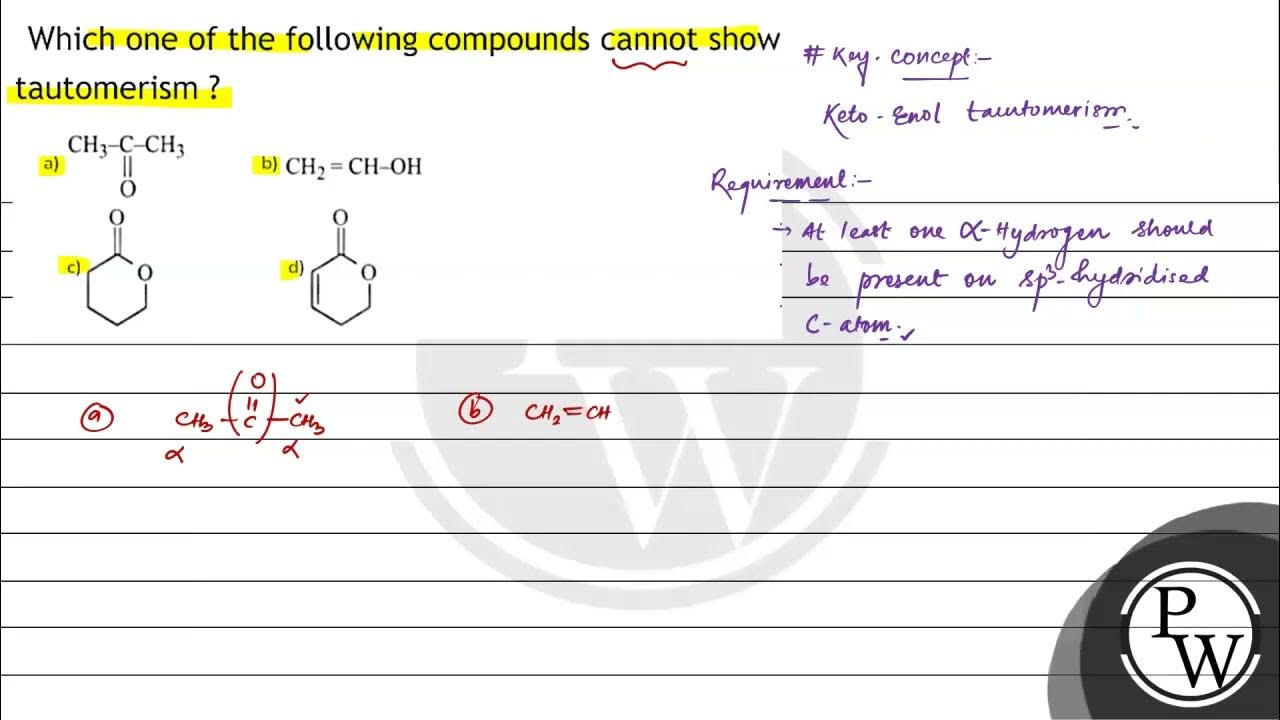 Which one of the following compounds cannot show
tautomerism ?
a) CH₃–C–CH₃
||
O
b) CH₂ = CH–OH
c) O
O
d) O
O
# Key. concept:-
Keto - Enol tautomerism.
Requirement:-
→ At least one α-Hydrogen should
be present on sp³-hydridised
C-atom. ✓
(a) CH₃ – (C) – CH₃ ✓
O
||
α α
(b) CH₂=CH
W
P
W